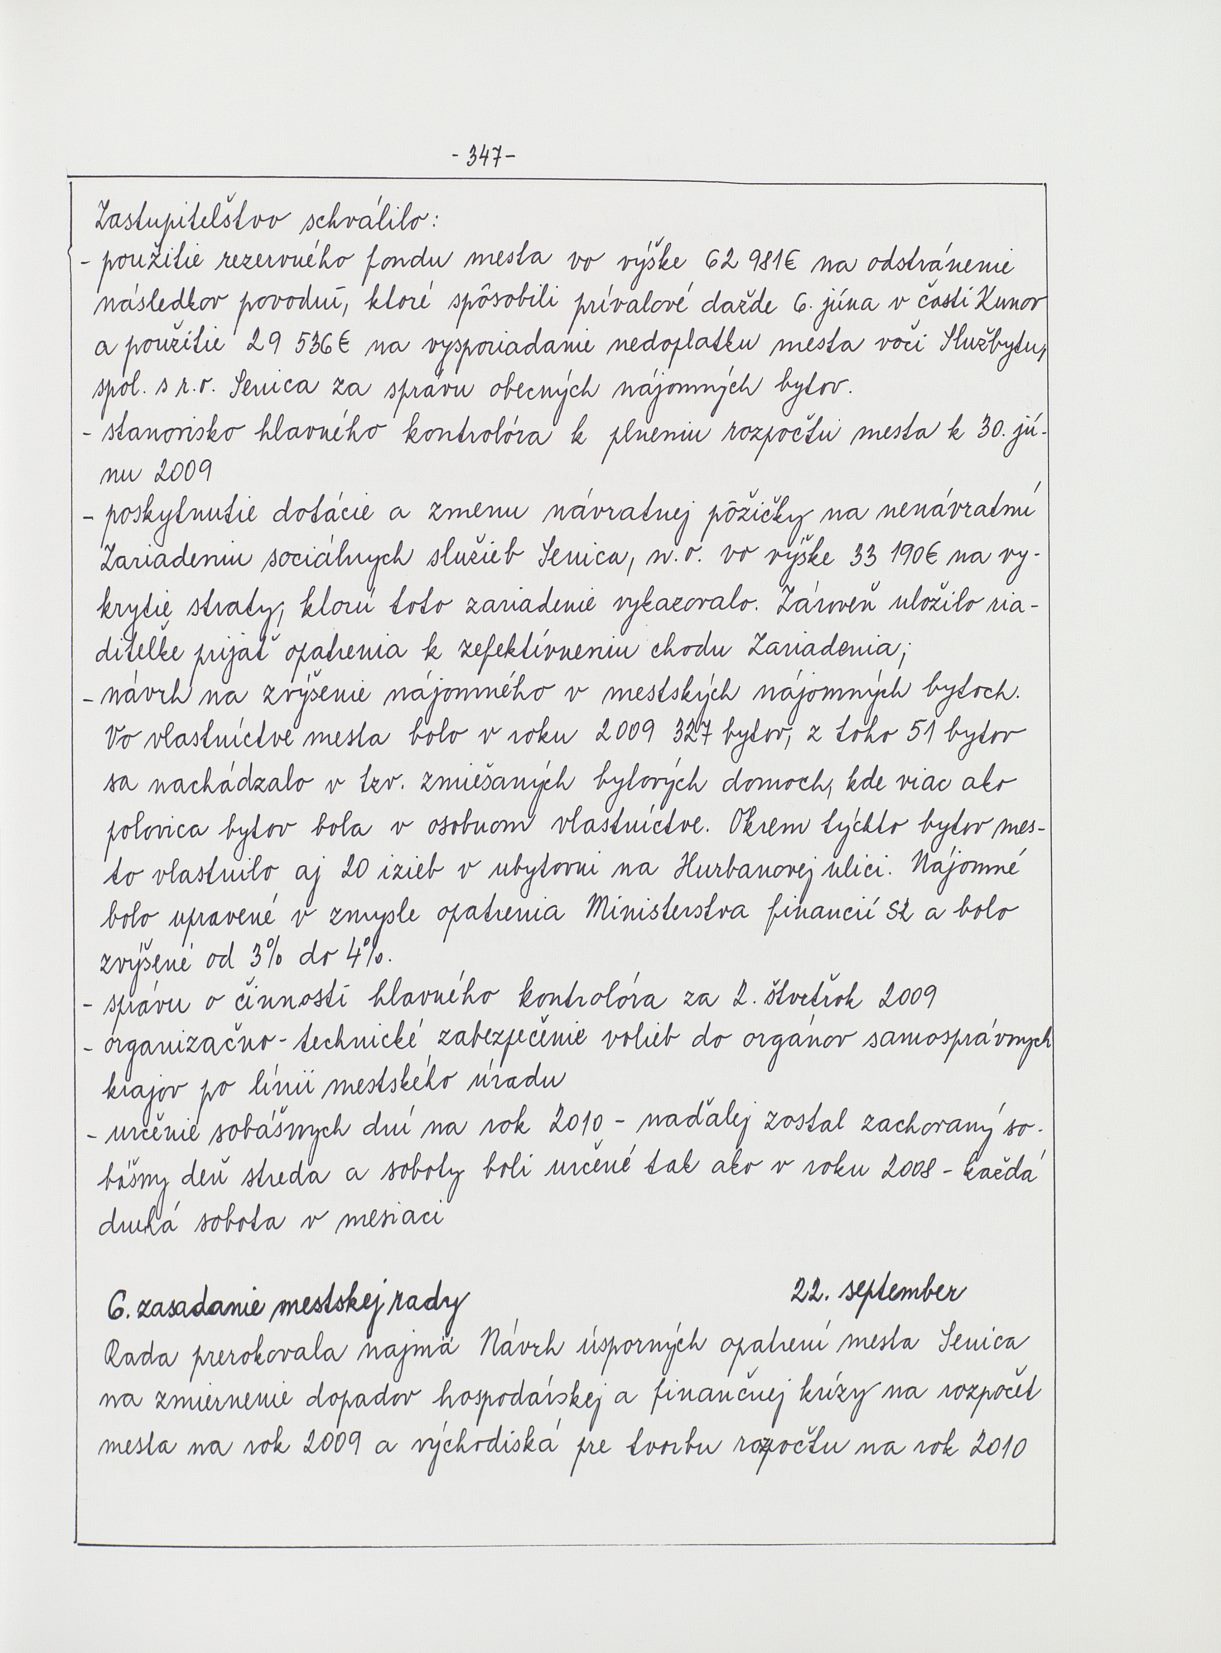 - 347 -
Zastupiteľstvo schválilo:
- použitie rezervného fondu mesta vo výške 62 981€ na odstránenie
následkov povodní, ktoré spôsobili prívalové dažde 6. júna v časti Kunov
a použitie 29 536€ na vysporiadanie nedoplatku mesta voči Službytu,
spol. s r.o. Senica za správu obecných nájomných bytov.
- stanovisko hlavného kontrolóra k plneniu rozpočtu mesta k 30. jú-
nu 2009
- poskytnutie dotácie a zmenu návratnej pôžičky na nenávratnú
Zariadeniu sociálnych služieb Senica, n.o. vo výške 33 190€ na vy-
krytie straty, ktorú toto zariadenie vykazovalo. Zároveň uložilo ria-
diteľke prijať opatrenia k zefektívneniu chodu Zariadenia;
- návrh na zvýšenie nájomného v mestských nájomných bytoch.
Vo vlastníctve mesta bolo v roku 2009 327 bytov, z toho 51 bytov
sa nachádzalo v tzv. zmiešaných bytových domoch, kde viac ako
polovica bytov bola v osobnom vlastníctve. Okrem týchto bytov mes-
to vlastnilo aj 20 izieb v ubytovni na Hurbanovej ulici. Nájomné
bolo upravené v zmysle opatrenia Ministerstva financií SR a bolo
zvýšené od 3% do 4%.
- správu o činnosti hlavného kontrolóra za 2. štvrťrok 2009
- organizačno-technické zabezpečenie volieb do orgánov samosprávnych
krajov po línii mestského úradu
- určenie sobášnych dní na rok 2010 - naďalej zostal zachovaný so-
bášny deň streda a soboty boli určené tak ako v roku 2008 - každá
druhá sobota v mesiaci
6. zasadanie mestskej rady 22. september
Rada prerokovala najmä Návrh úsporných opatrení mesta Senica
na zmiernenie dopadov hospodárskej a finančnej krízy na rozpočet
mesta na rok 2009 a východiská pre tvorbu rozpočtu na rok 2010